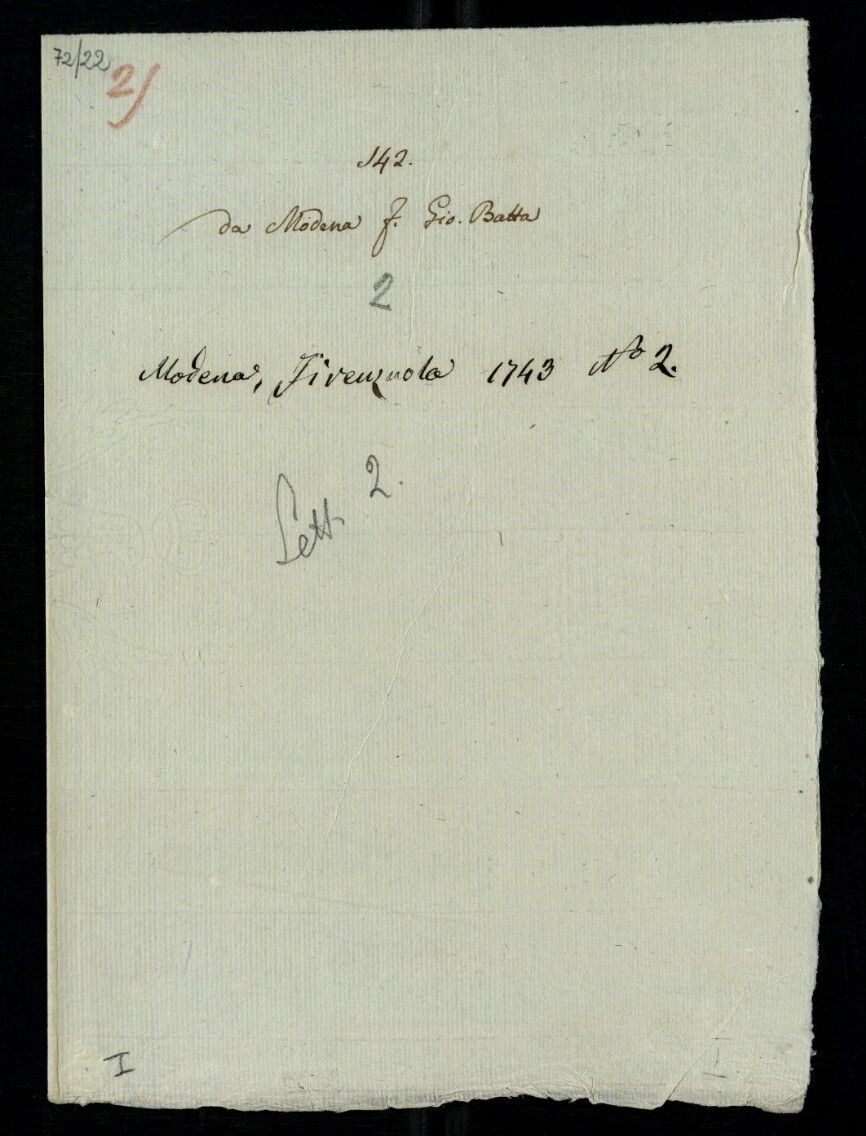 72/22
2)
142.
da Modena F. Gio. Batta
2
Modena, Firenzuola 1743 No 2.
Lett. 2.
I